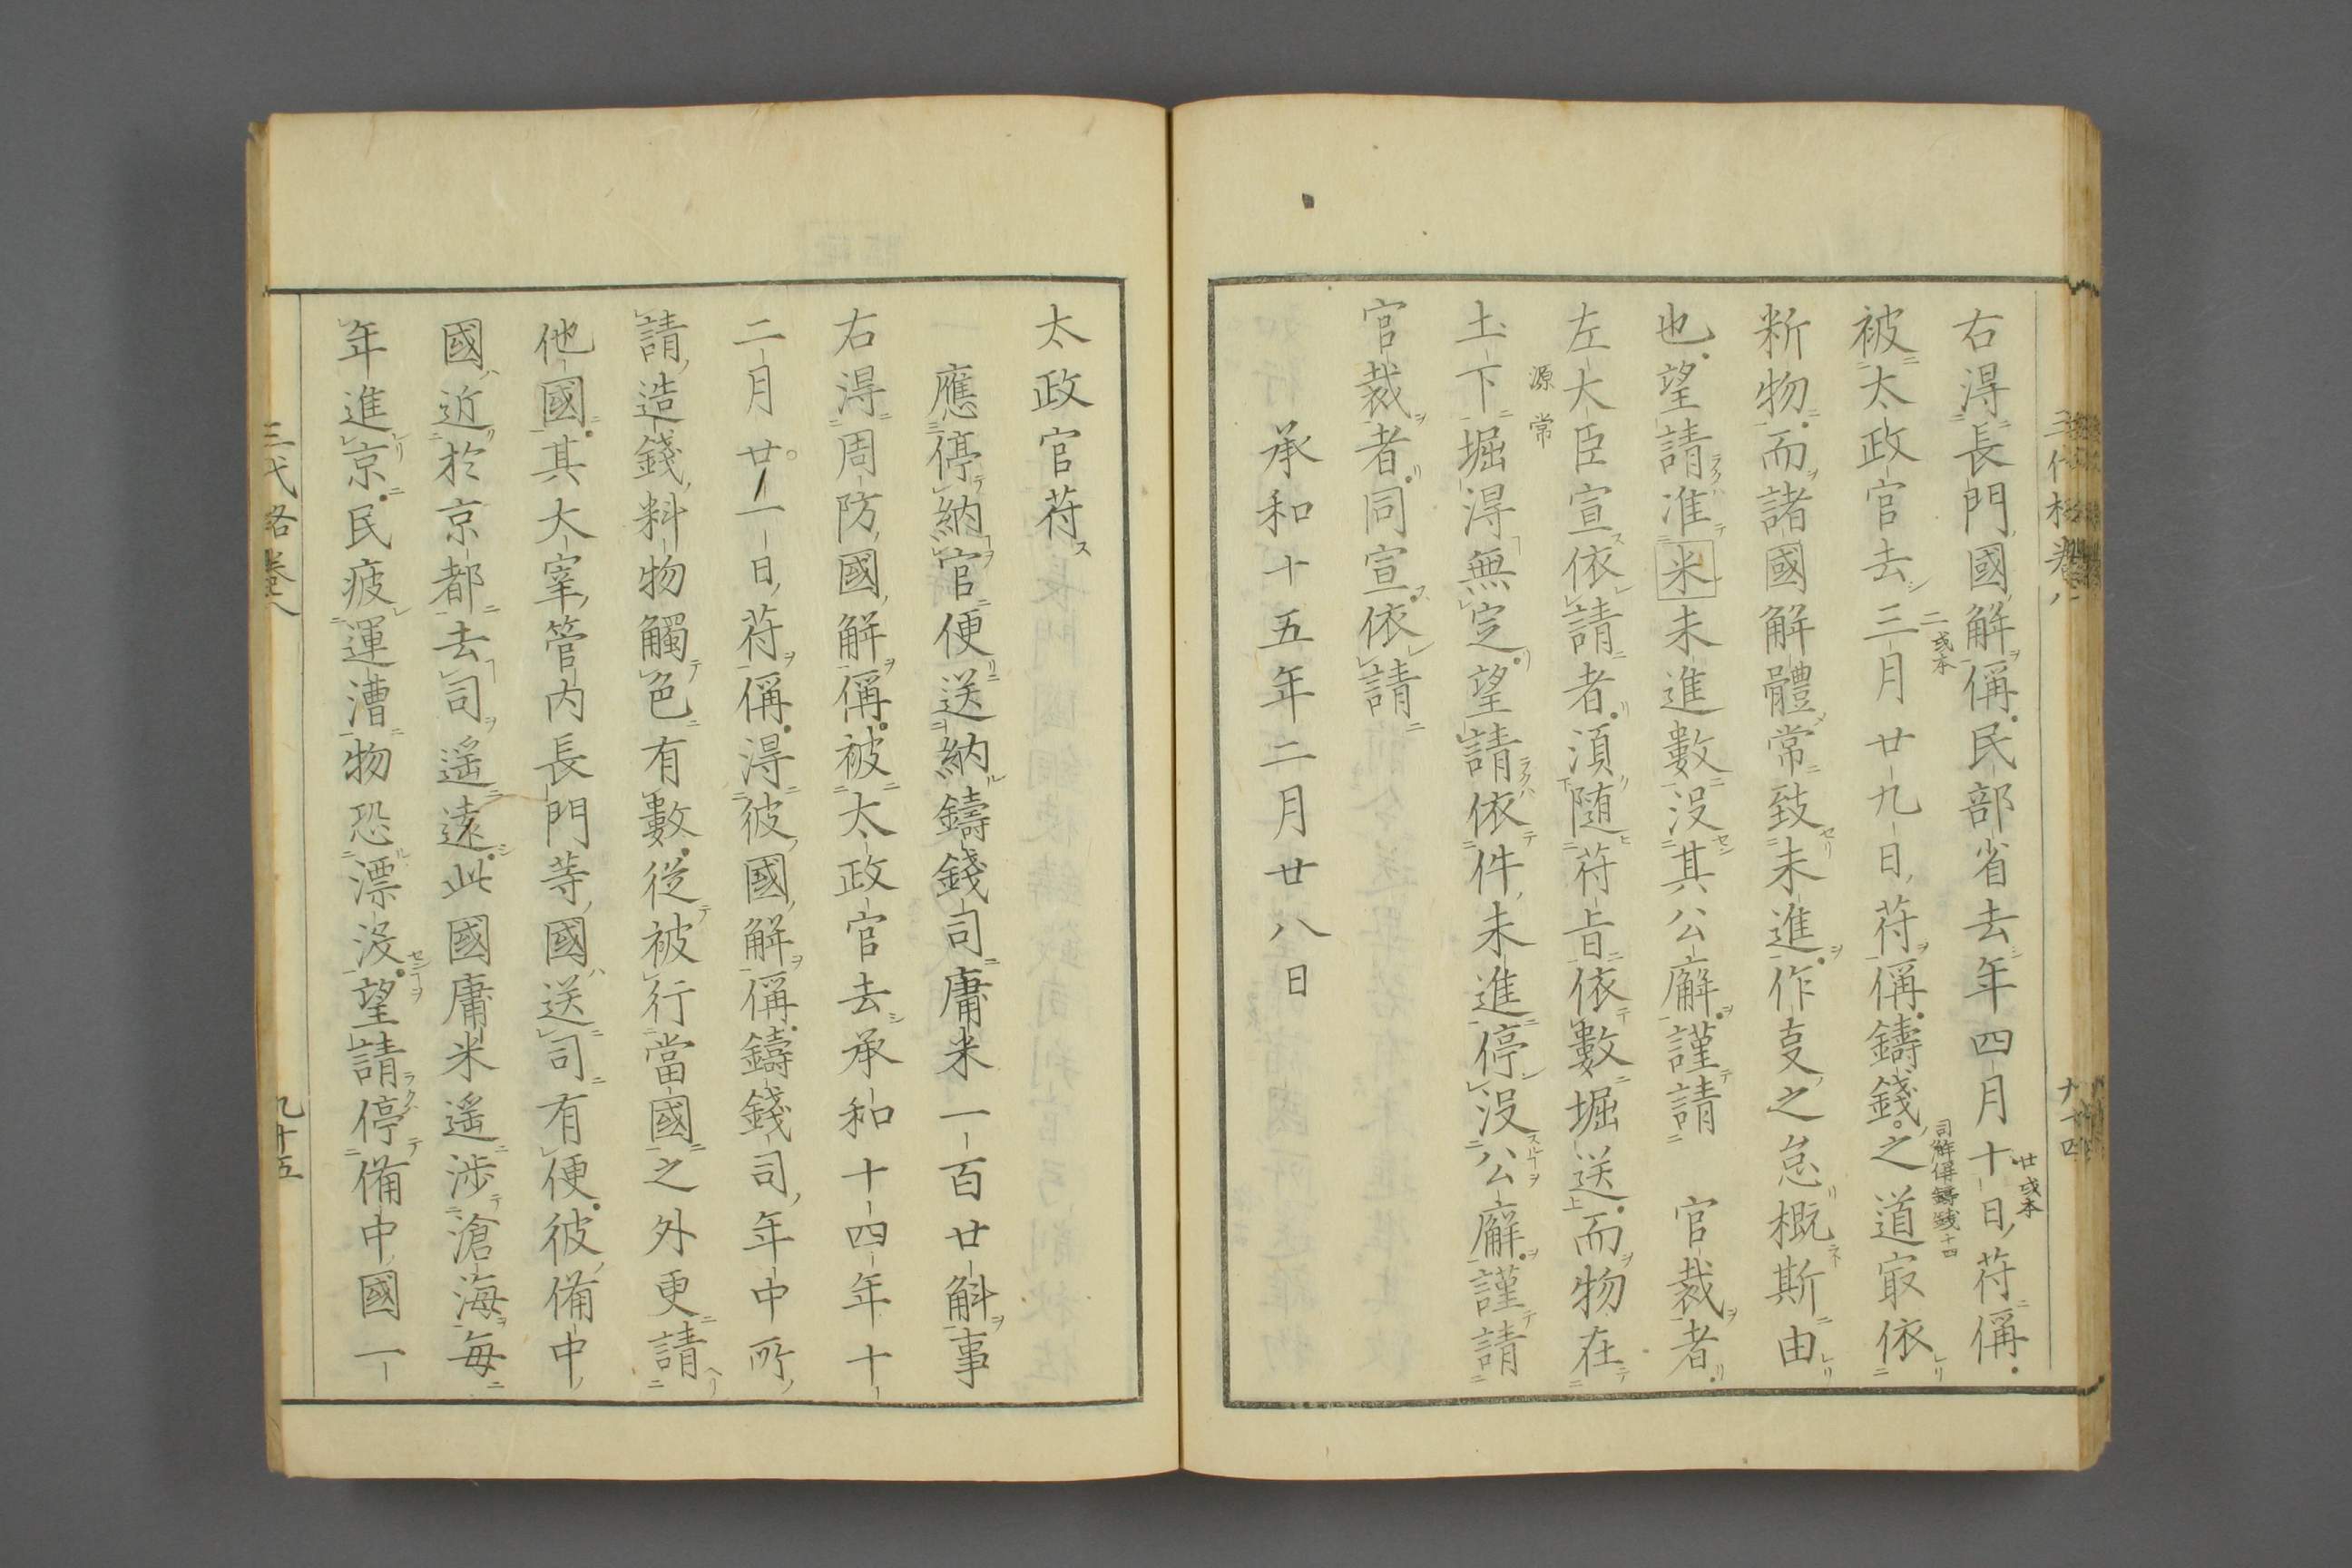 右得長門國解偁民部省去年四月十日符偁
被太政官去三月廿九日符偁鑄錢之道冣依
新物而諸國解體常致未進作㕝之怠概斯由
也望請准米未進數没其公廨謹請　官裁者
左大臣宣依請者須随符旨依數堀送而物在
土下堀得無定望請依件未進停没公廨謹請
官裁者同宣依請
承和十五年二月廿八日
廿或本
二或本
司解偁鑄錢
源常
太政官符
應停納官便送納鑄錢司庸米一百廿斛事
右得周防國解偁被太政官去承和十四年十
二月廿一日符偁得彼國解偁鑄錢司年中所
請造錢料物觸色有數從被行當國之外更請
他國其大宰管内長門等國送司有便彼備中
國近於京都去司遥遠此國庸米遥渉滄海毎
年進京民疲運漕物恐漂没望請停備中國一
三代格卷八
九十四
三代格卷八
九十五